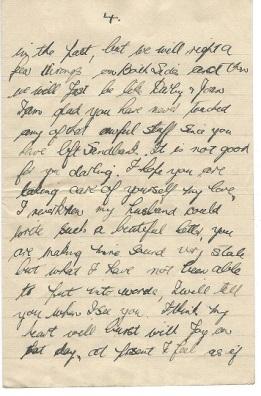 4.
in the past, but we will right a
few things on Both Sides and then
we will Just be like Darby & Joan
I am glad you have never touched
any of that awful stuff since you
have left Sandbank. It is not good
for you darling. I hope you are
taking care of yourself my love,
I never knew my husband could
write such a beautiful letter, you
are making mine sound very stale
but what I have not been able
to put into words, I will tell
you when I see you. I think my
heart will burst with Joy on
that day, at present I feel as if